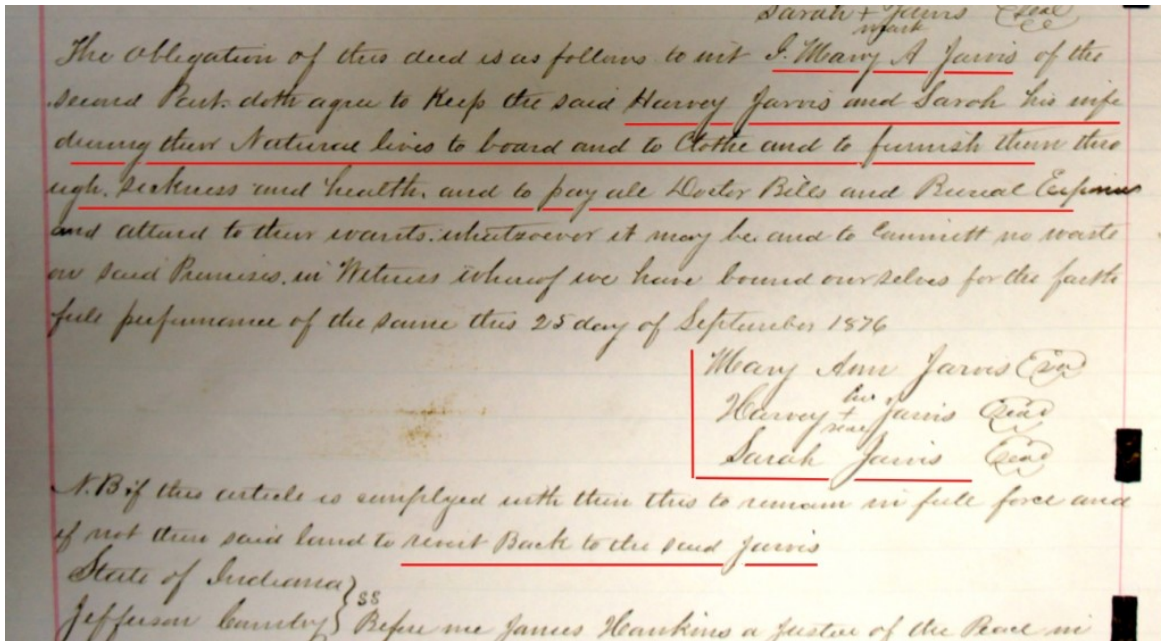 Sarah + Jarvis (seal)
mark
The obligation of this deed is as follows to wit I. Mary A Jarvis of the
second Part. doth agree to Keep the said Harvey Jarvis and Sarah his wife
during their Natural lives to board and to Clothe and to furnish them thro
ugh. Sickness and health. and to pay all Doctor Bills and Burial Expenses
and attend to their wants. whatsoever it may be. and to Committ no waste
on said Premises. in Witness whereof we have bound our selves for the faith
full performance of the same this 25 day of September 1876
Mary Ann Jarvis (seal)
his
Harvey + Jarvis (seal)
mark
Sarah Jarvis (seal)
N.B if this article is complyed with then this to remain in full force and
if not then said land to revert Back to the said Jarvis
State of Indiana }
Jefferson County } SS Before me James Hankins a Justice of the Peace in